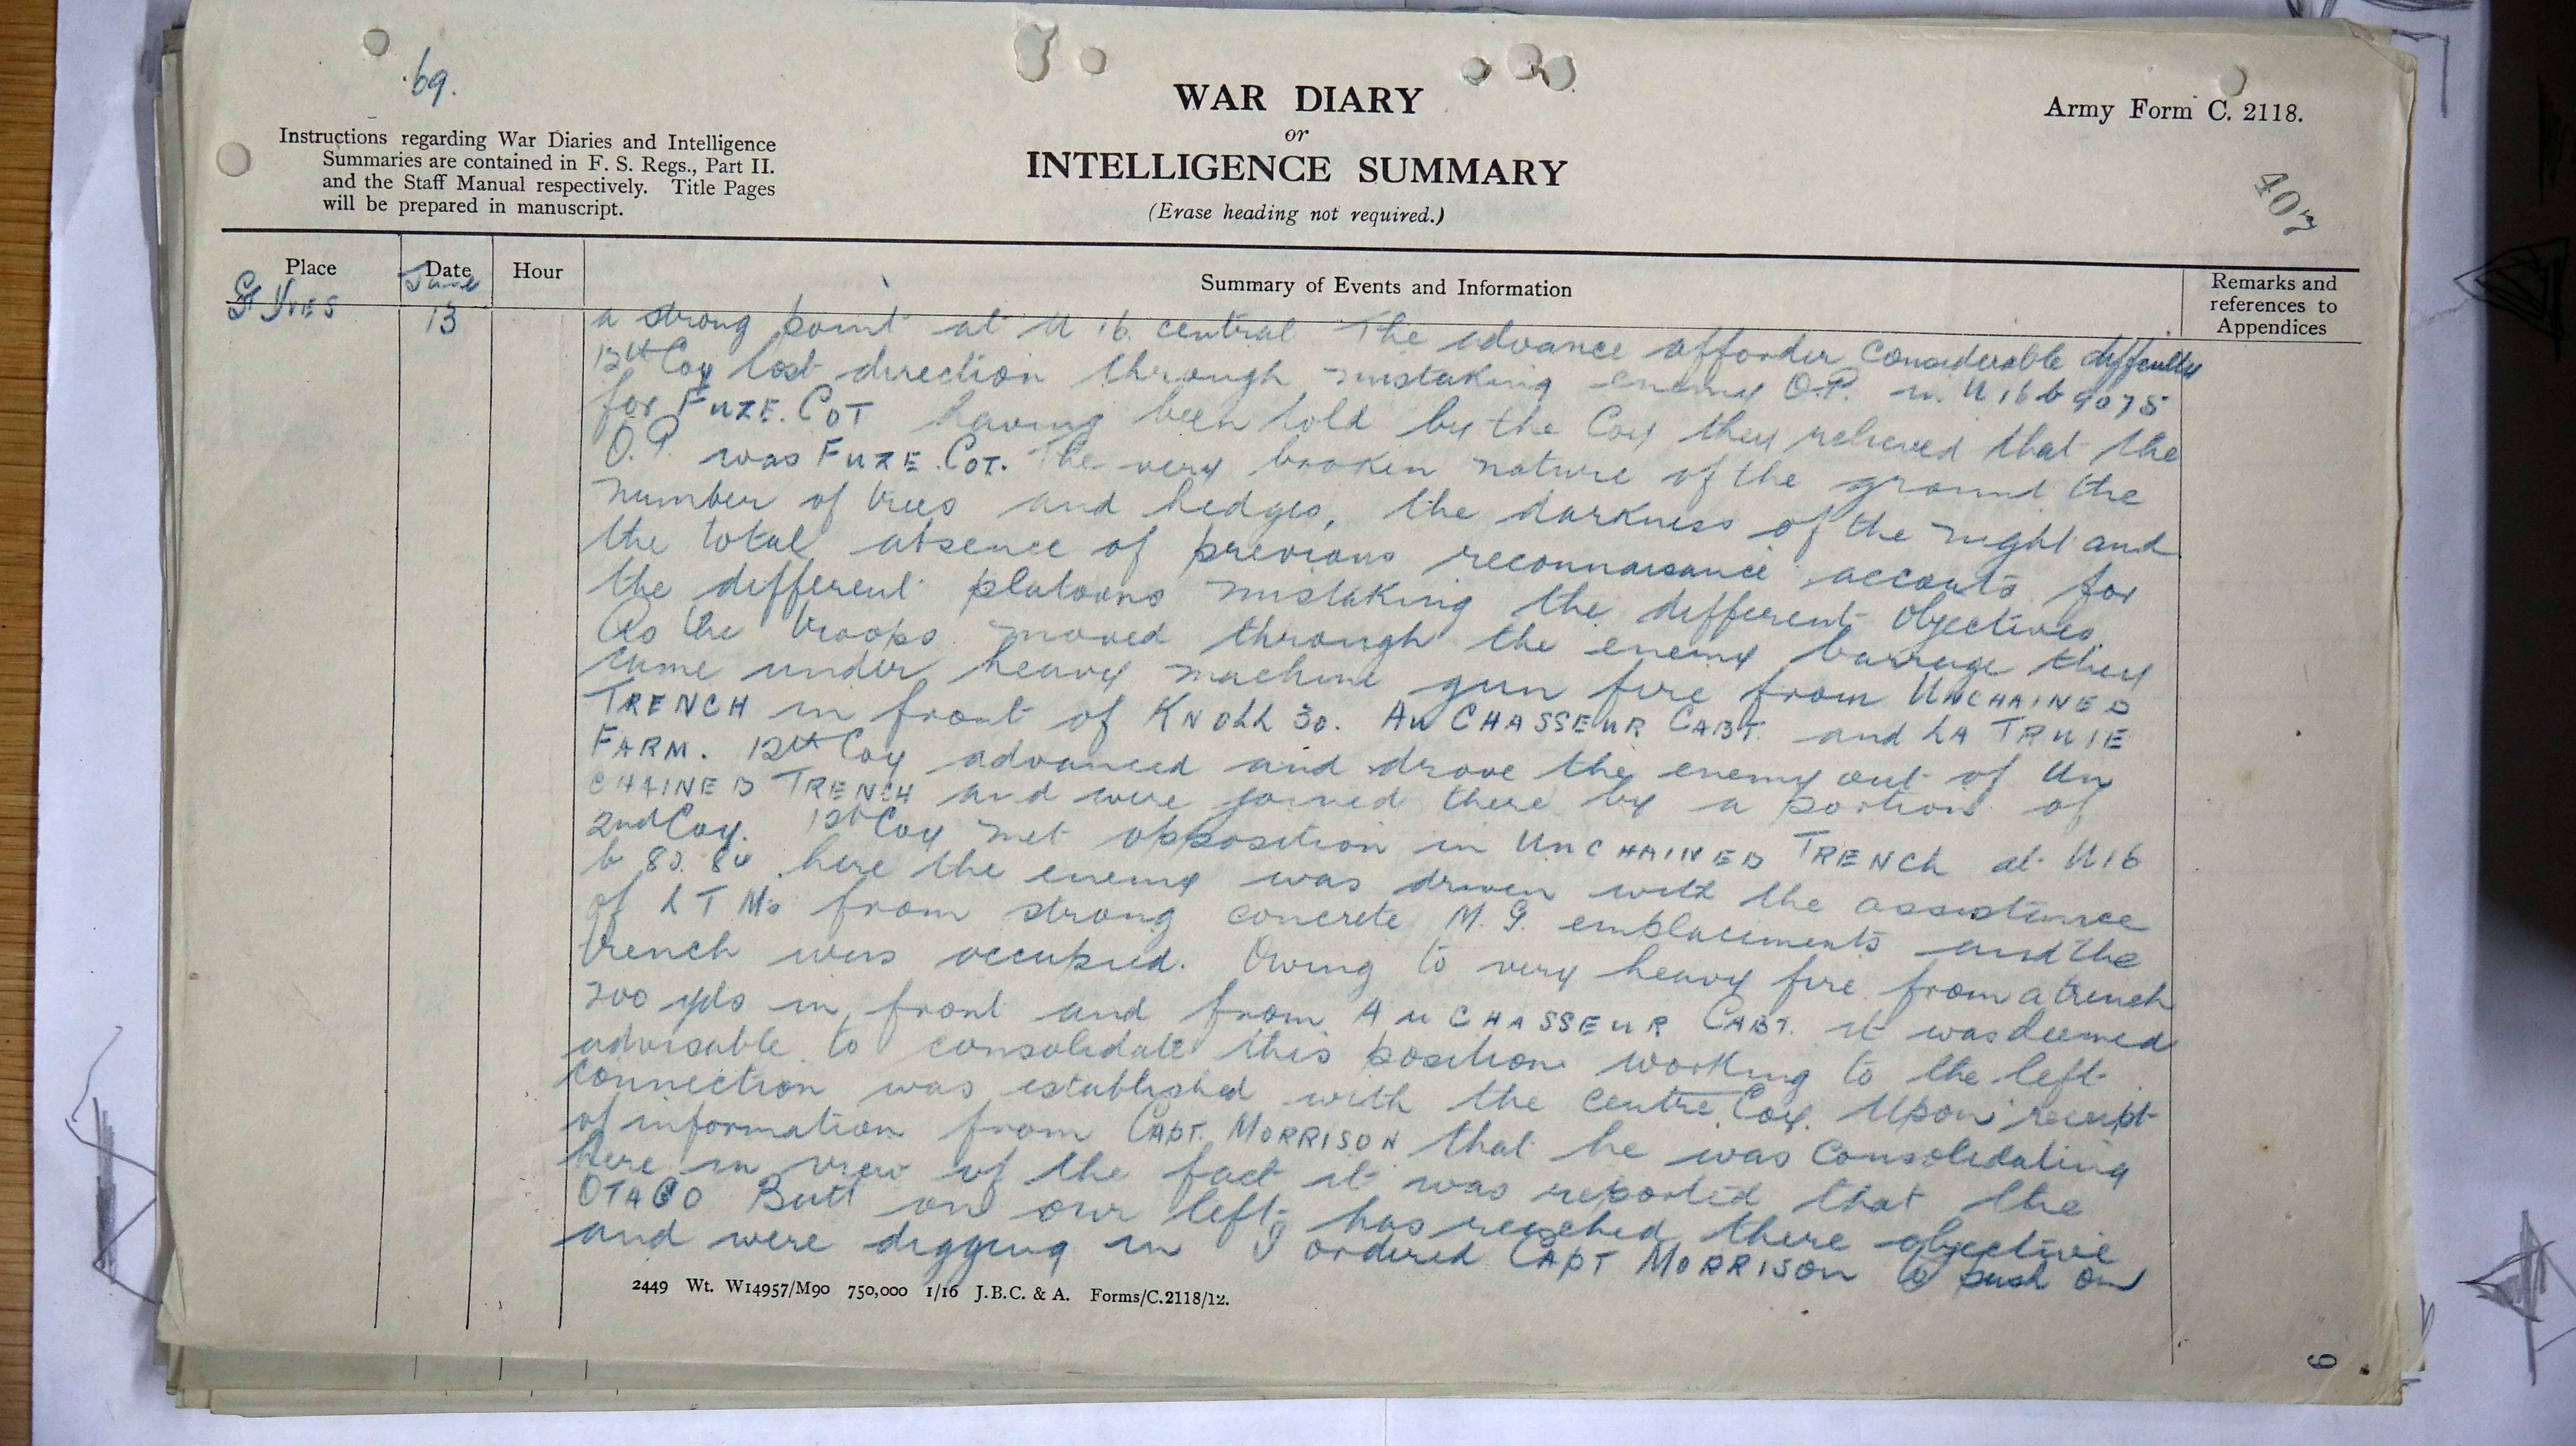 69.
Instructions regarding War Diaries and Intelligence
Summaries are contained in F. S. Regs., Part II.
and the Staff Manual respectively. Title Pages
will be prepared in manuscript.
WAR DIARY
or
INTELLIGENCE SUMMARY
(Erase heading not required.)
Army Form C. 2118.
407
Place
Date
Hour
Summary of Events and Information
Remarks and
references to
Appendices
St YVES
June
13
a strong point at U 16. central The advance afforder considerable difficulty
12th Coy lost direction through mistaking enemy O.P. in U 16 b 90 75
for FUZE. COT having been told by the Coy they relieved that the
O.P. was FUZE. COT. The very broken nature of the ground the
number of trees and hedges, the darkness of the night and
the total absence of previous reconnaisance accouts for
the different platoons mistaking the different objectives.
As the troops moved through the enemy barrage they
came under heavy machine gun fire from UNCHAINED
TRENCH in front of KNOLL 30. AU CHASSEUR CABT. and LA TRUIE
FARM. 12th Coy advanced and drove the enemy out of UN
CHAINED TRENCH and were joined there by a portion of
2nd Coy. 1st Coy met opposition in UNCHAINED TRENCH at U16
b 80. 80 here the enemy was driven with the assistance
of L T Ms from strong concrete M. G. emplacements and the
trench was occupied. Owing to very heavy fire from a trench
200 yds in front and from AU CHASSEUR CABT. it was deemed
advisable to consolidate this position working to the left
connection was established with the centre Coy. Upon receipt
of information from CAPT. MORRISON that he was consolidating
here in view of the fact it was reported that the
OTAGO Batt on our left has reached there objective
and were digging in I ordered CAPT MORRISON to push on
2449 Wt. W14957/M90 750,000 1/16 J.B.C. & A. Forms/C.2118/12.
6